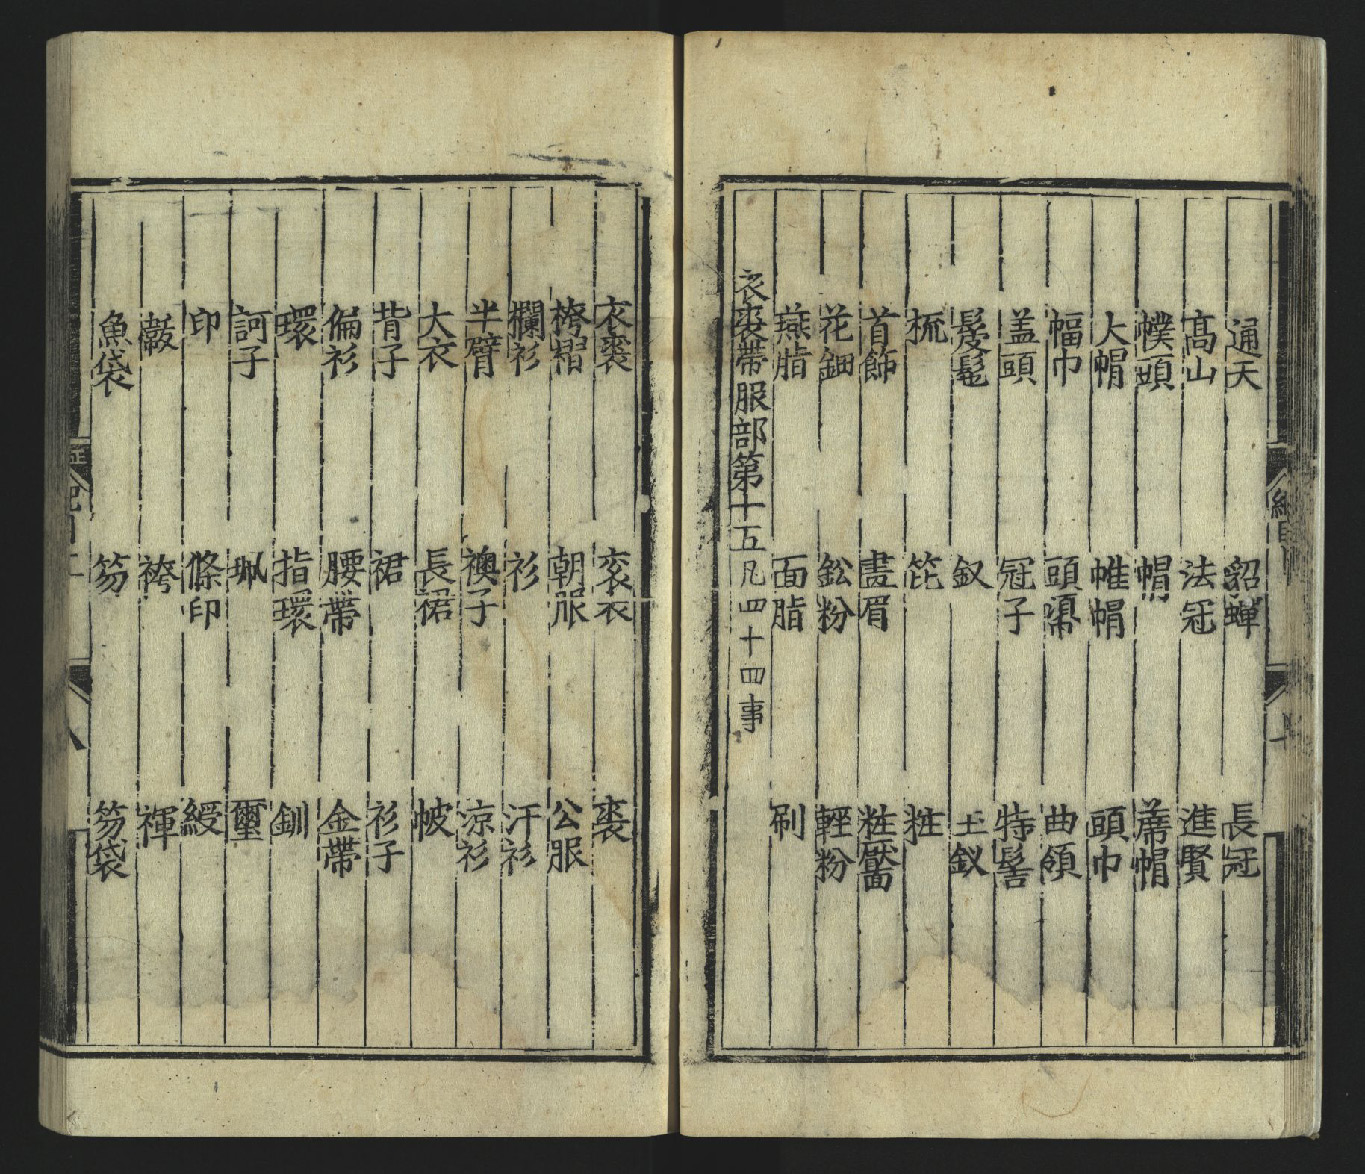 通天 貂蟬 長冠
高山 法冠 進賢
幞頭 帽 蓆帽
大帽 帷帽 頭巾
幅巾 頭𢄼 曲領
盖頭 冠子 特髻
髲髢 釵 玉釵
梳 箆 粧
首飾 畫眉 粧靨
花鈿 鈆粉 輕粉
燕脂 面脂 刷
衣裘帶服部第十五凡四十四事
衣裘 衮衣 裘
袴褶 朝服 公服
襴衫 衫 汗衫
半臂 襖子 凉衫
大衣 長裙 帔
背子 裙 衫子
偏衫 腰帶 金帶
環 指環 釧
訶子 珮 璽
印 條印 綬
黻 袴 褌
魚袋 笏 笏袋